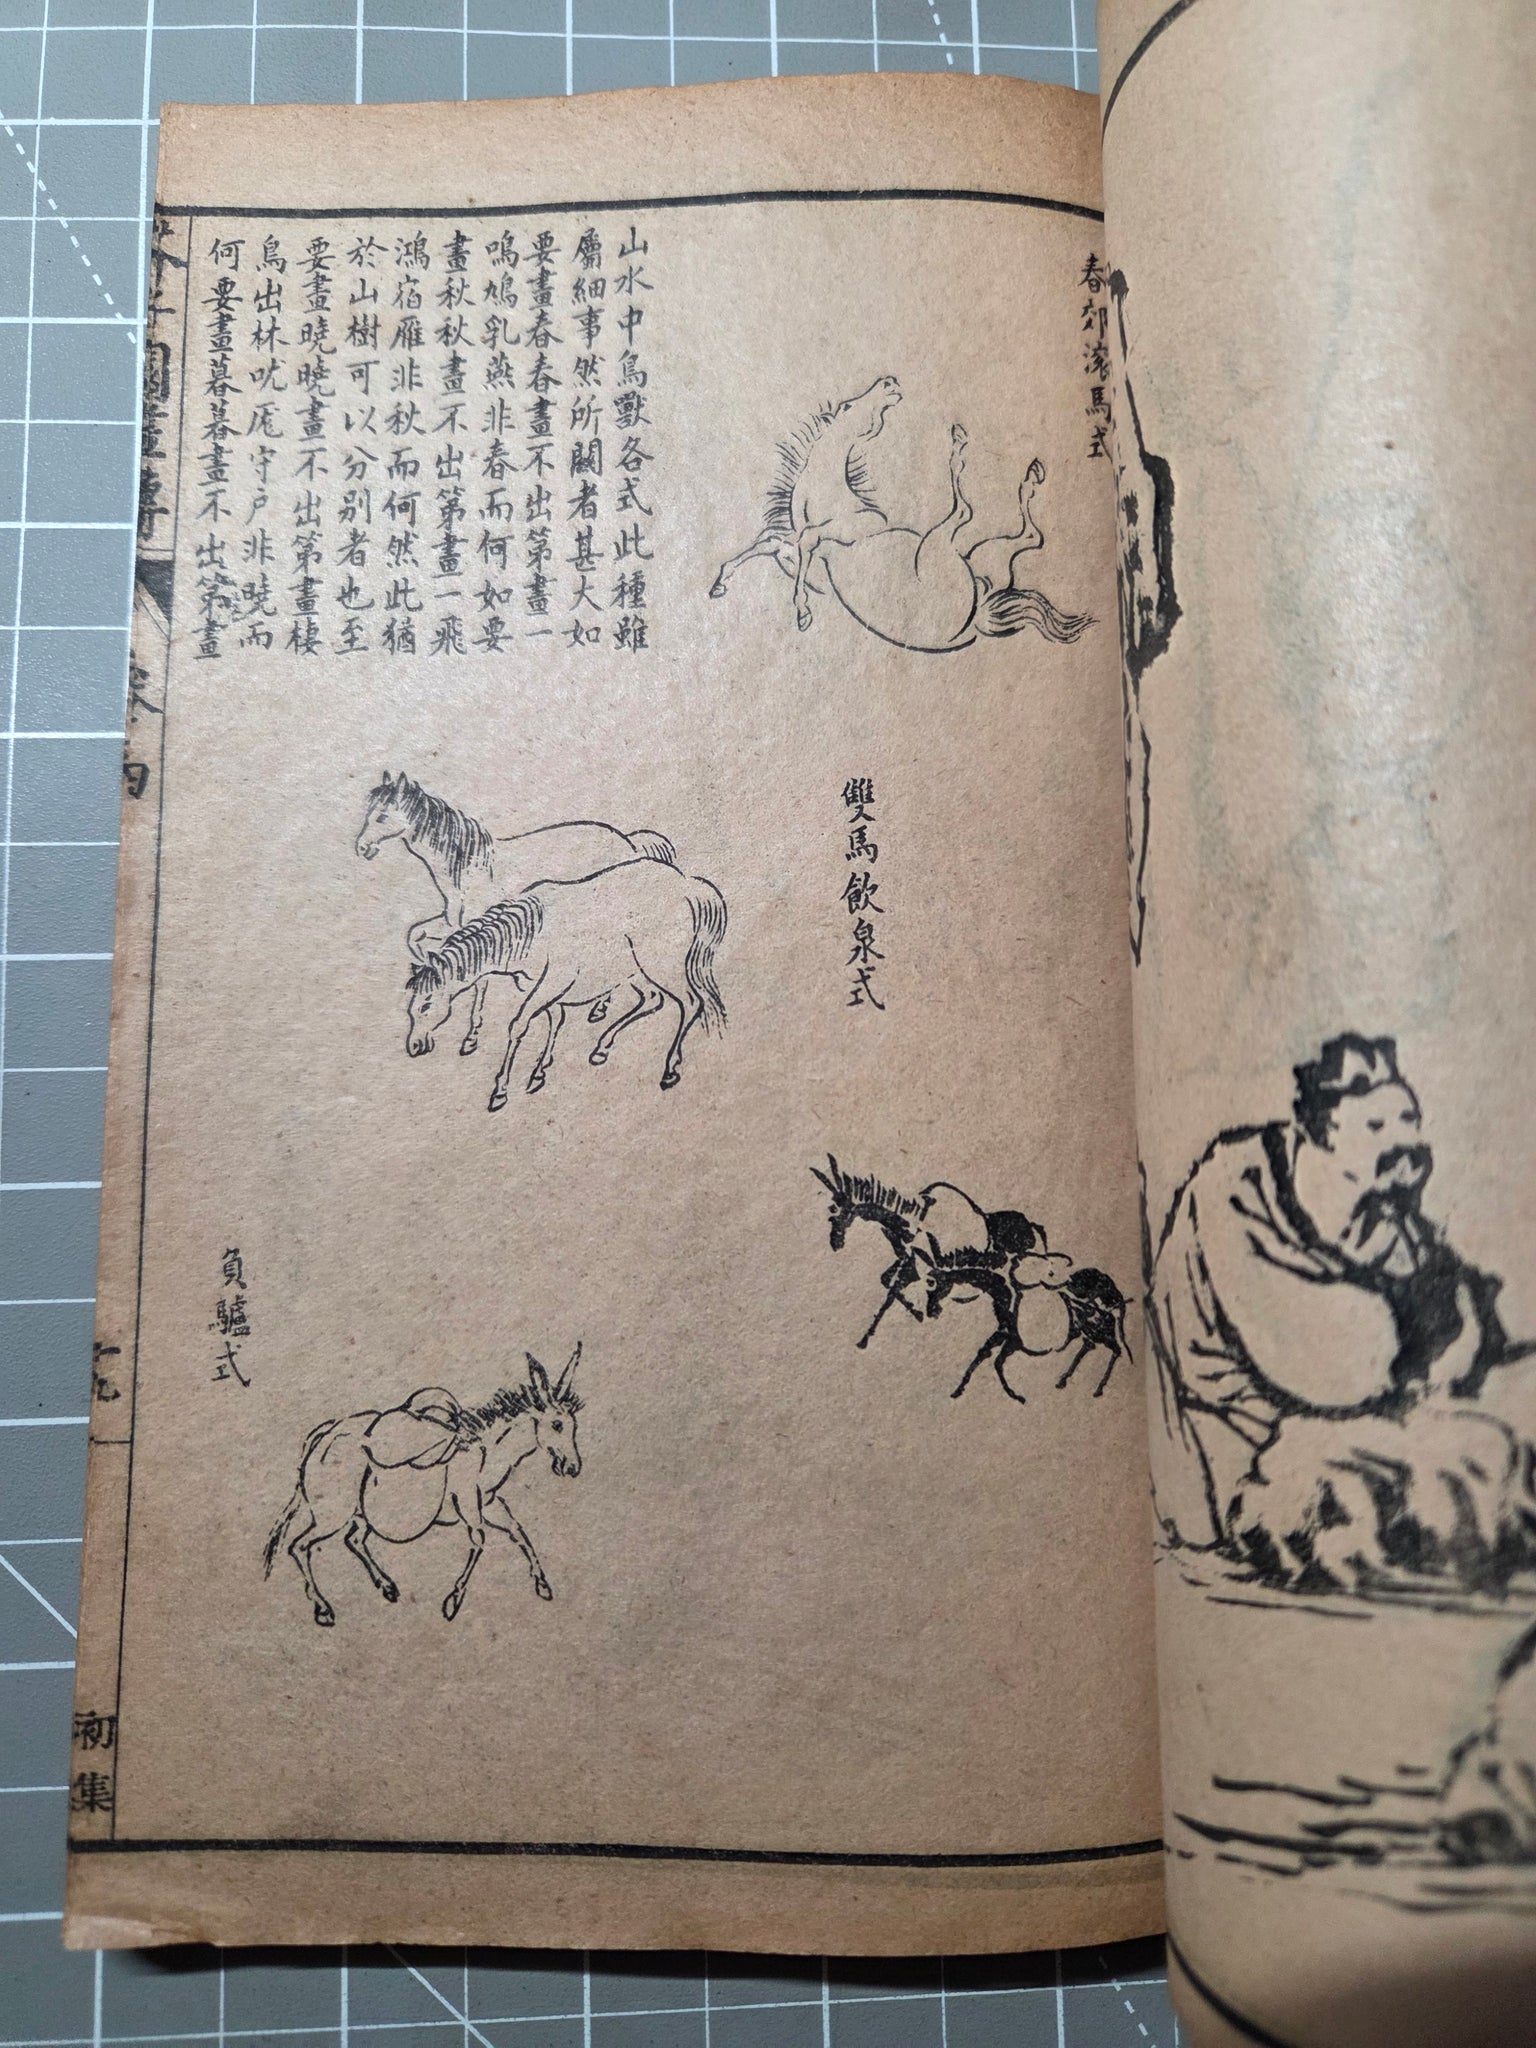 春郊滚馬式
山水中鳥獸各式此種雖
屬細事然所關者甚大如
要畫春春畫不出第畫一
鳴鳩乳燕非春而何如要
畫秋秋畫不出第畫一飛
鴻宿雁非秋而何然此猶
於山樹可以分别者也至
要畫曉曉畫不出第畫棲
鳥出林吠厖守户非曉而
何要畫暮暮畫不出第畫
雙馬飲泉式
負驢式
芥子園畫傳
十九
初集